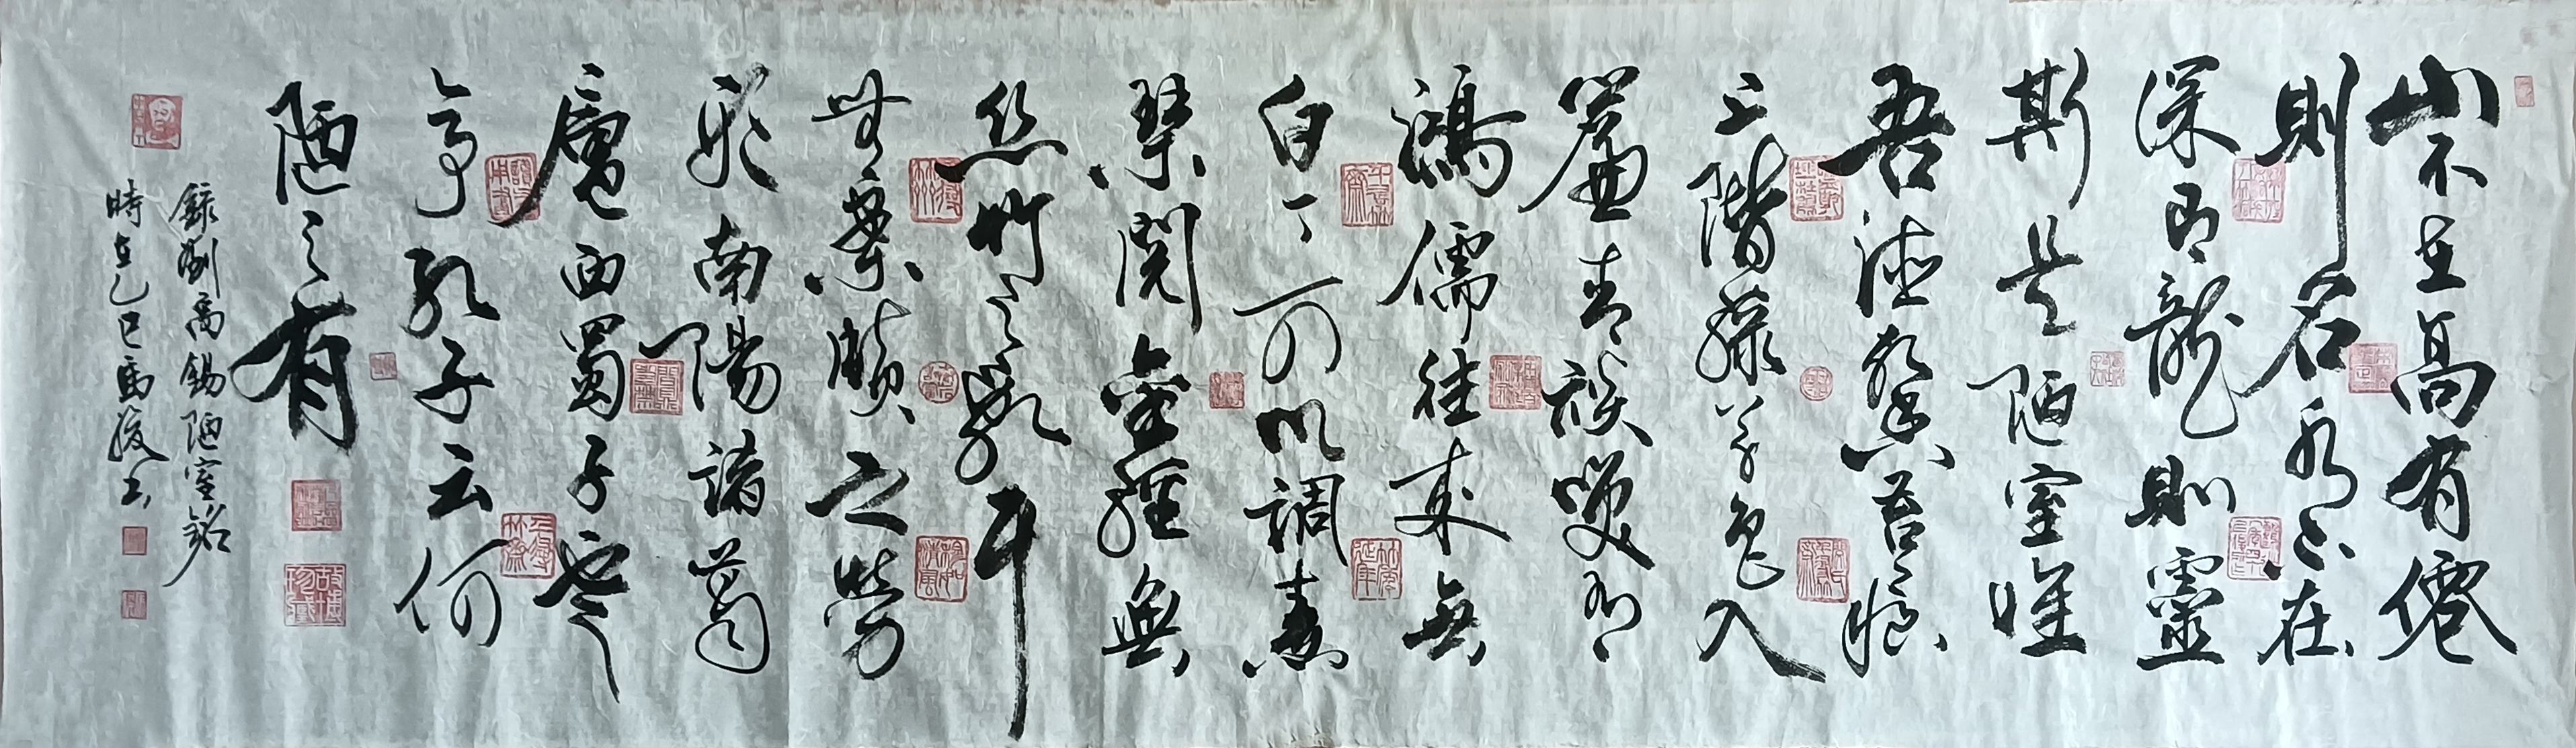 山不在高有僊
則名水不在
深即龍則靈
斯是陋室唯
吾德馨苔痕
上階綠草色入
簾青談笑有
鴻儒往來無
白丁可以調素
琴閱金經無
絲竹之亂耳
無案牘之勞
形南陽諸葛
廬西蜀子雲
亭孔子云何
陋之有
錄劉禹錫陋室銘
時在乙巳